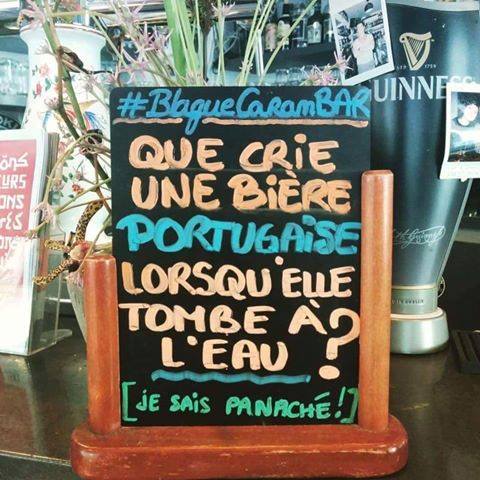 #BlagueCaramBAR
QUE CRIE
UNE BIÈRE
PORTUGAISE
LORSQU'ELLE
TOMBE À
L'EAU ?
[JE SAIS PANACHÉ!]
GUINNESS